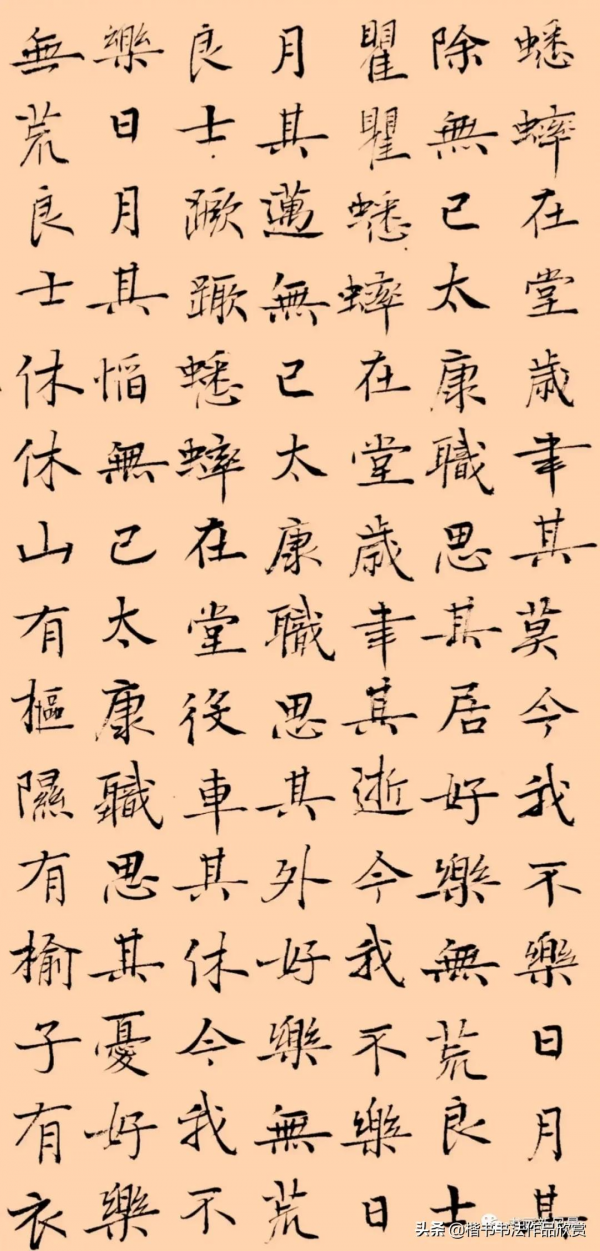 蟋蟀在堂歲聿其莫今我不樂日月其
除無已太康職思其居好樂無荒良士
瞿瞿蟋蟀在堂歲聿其逝今我不樂日
月其邁無已太康職思其外好樂無荒
良士蹶蹶蟋蟀在堂役車其休今我不
樂日月其慆無已太康職思其憂好樂
無荒良士休休山有樞隰有榆子有衣
头条 @楷书书法作品欣赏